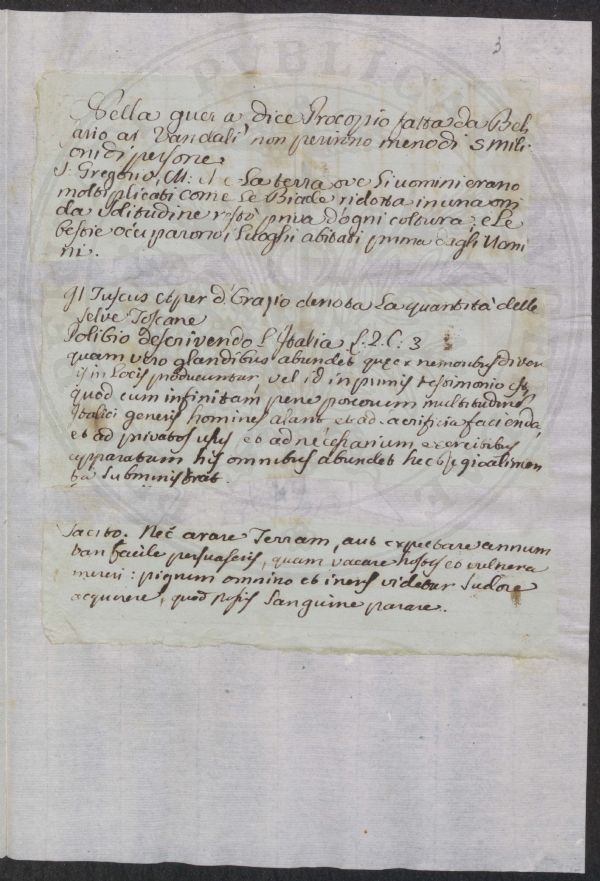 3
Nella guerra dice Procopio fatta da Beli
ario ai Vandali non perirono meno di 5 mili
oni di persone
S. Gregorio M: La terra ove li uomini erano
moltiplicati come le Biade ridotta in una orri
da solitudine restò priva d'ogni coltura, e le
bestie ocuparono i luoghi abitati prima dagli Uomi
ni.
gl Tuscus et per d'Grazio denota la quantità delle
selve Toscane
Polibio descrivendo l'Italia L. 2. C: 3
quam vero glandibus abundet quę ex nemoribus diver
sis in locis producuntur, vel id in primis testimonio est
quod cum infinitam pene porcorum multitudinem
Italici generis homines alant et ad sacrificia facienda,
et ad privatos usus et ad necessarium exercitibus
apparatum his omnibus abundet hec regio alimen
ta subministrat.
Tacito. Nec arare Terram, aut expectare annum
tan facile persuaseris, quam vocare hostes et vulnera
mereri: pigrum omnino et iners videtur sudore
acquirere, quod possis sanguine parare.
PVBLIC